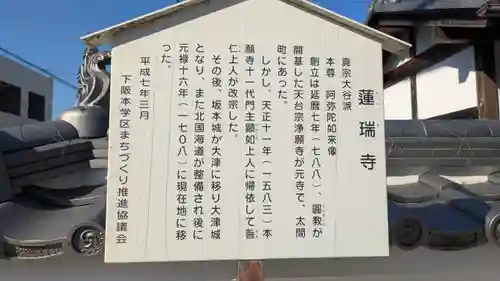 蓮瑞寺
真宗大谷派
本尊 阿弥陀如来像
創立は延暦七年(七八八)、圓教が
開基した天台宗浄願寺が元寺で、太間
町にあった。
しかし、天正十一年(一五八三)本
願寺十一代門主顕如上人に帰依して吾
仁上人が改宗した。
その後、坂本城が大津に移り大津城
となり、また北国海道が整備され後に
元禄十六年(一七〇八)に現在地に移
った。
平成七年三月
下阪本学区まちづくり推進協議会